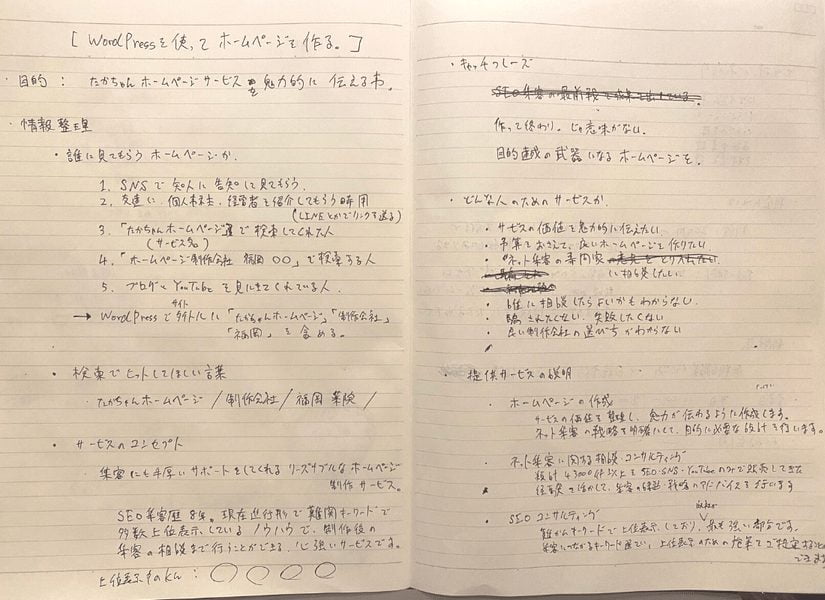 [ WordPressを使って ホームページを作る。]
・目的 : たかちゃんホームページサービスを 魅力的に 伝える事。
・情報整理
・誰に見てもらう ホームページか.
1. SNSで 知人に 告知して見てもらう.
2. 友達に、個人事業主、経営者を紹介してもらう時用
(LINEとかでリンクを送る)
3. 「たかちゃんホームページ」で検索してくれた人
(サービス名)
4. 「ホームページ制作会社 福岡 〇〇」で検索する人
5. ブログや YouTubeを見にきてくれている人.
→ WordPressでサイトタイトルに「たかちゃんホームページ」「制作会社」
「福岡」を含める。
・検索でヒットしてほしい言葉
・たかちゃんホームページ / 制作会社 / 福岡 薬院 /
・サービスのコンセプト
・集客にも手厚いサポートをしてくれる リーズナブルな ホームページ
制作サービス。
SEO集客歴 8年。現在進行形で 難関キーワードで
多数上位表示している ノウハウで、制作後の
集客の相談まで行うことができる、心強いサービスです。
上位表示 : 〇 〇 〇 〇
・キャッチフレーズ
SEO集客の最前線で成果を出している。
作って終わり。じゃ意味がない.
目的達成の武器になる ホームページを.
・どんな人のためのサービスか.
・サービスの価値を魅力的に伝えたい
・予算をおさえて、良いホームページを作りたい
・ネット集客の専門家 に相談したい
・誰に相談したらよいかもわからない.
・騙されたくない. 失敗したくない
・良い制作会社の選び方がわからない
・提供サービスの説明
・ホームページの作成
サービスの価値を整理し、魅力が伝わるように作成します。
ネット集客の戦略を明確にして、目的に必要な設計を行います。
・ネット集客に関する相談・コンサルティング
SEO・SNS・YouTubeのみで販売してきた
経験を活かして、集客の・戦略のアドバイスを行います
・SEOコンサルティング
難かんキーワードで上位表示しており、最も強い部分です。
集客につながるキーワード選び、上位表示のための施策をご提案することが
できます